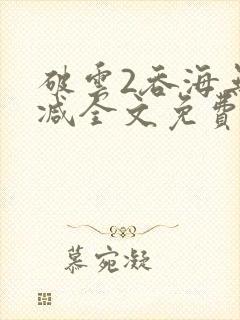 破雲2吞海
减全文免費
慕宛凝